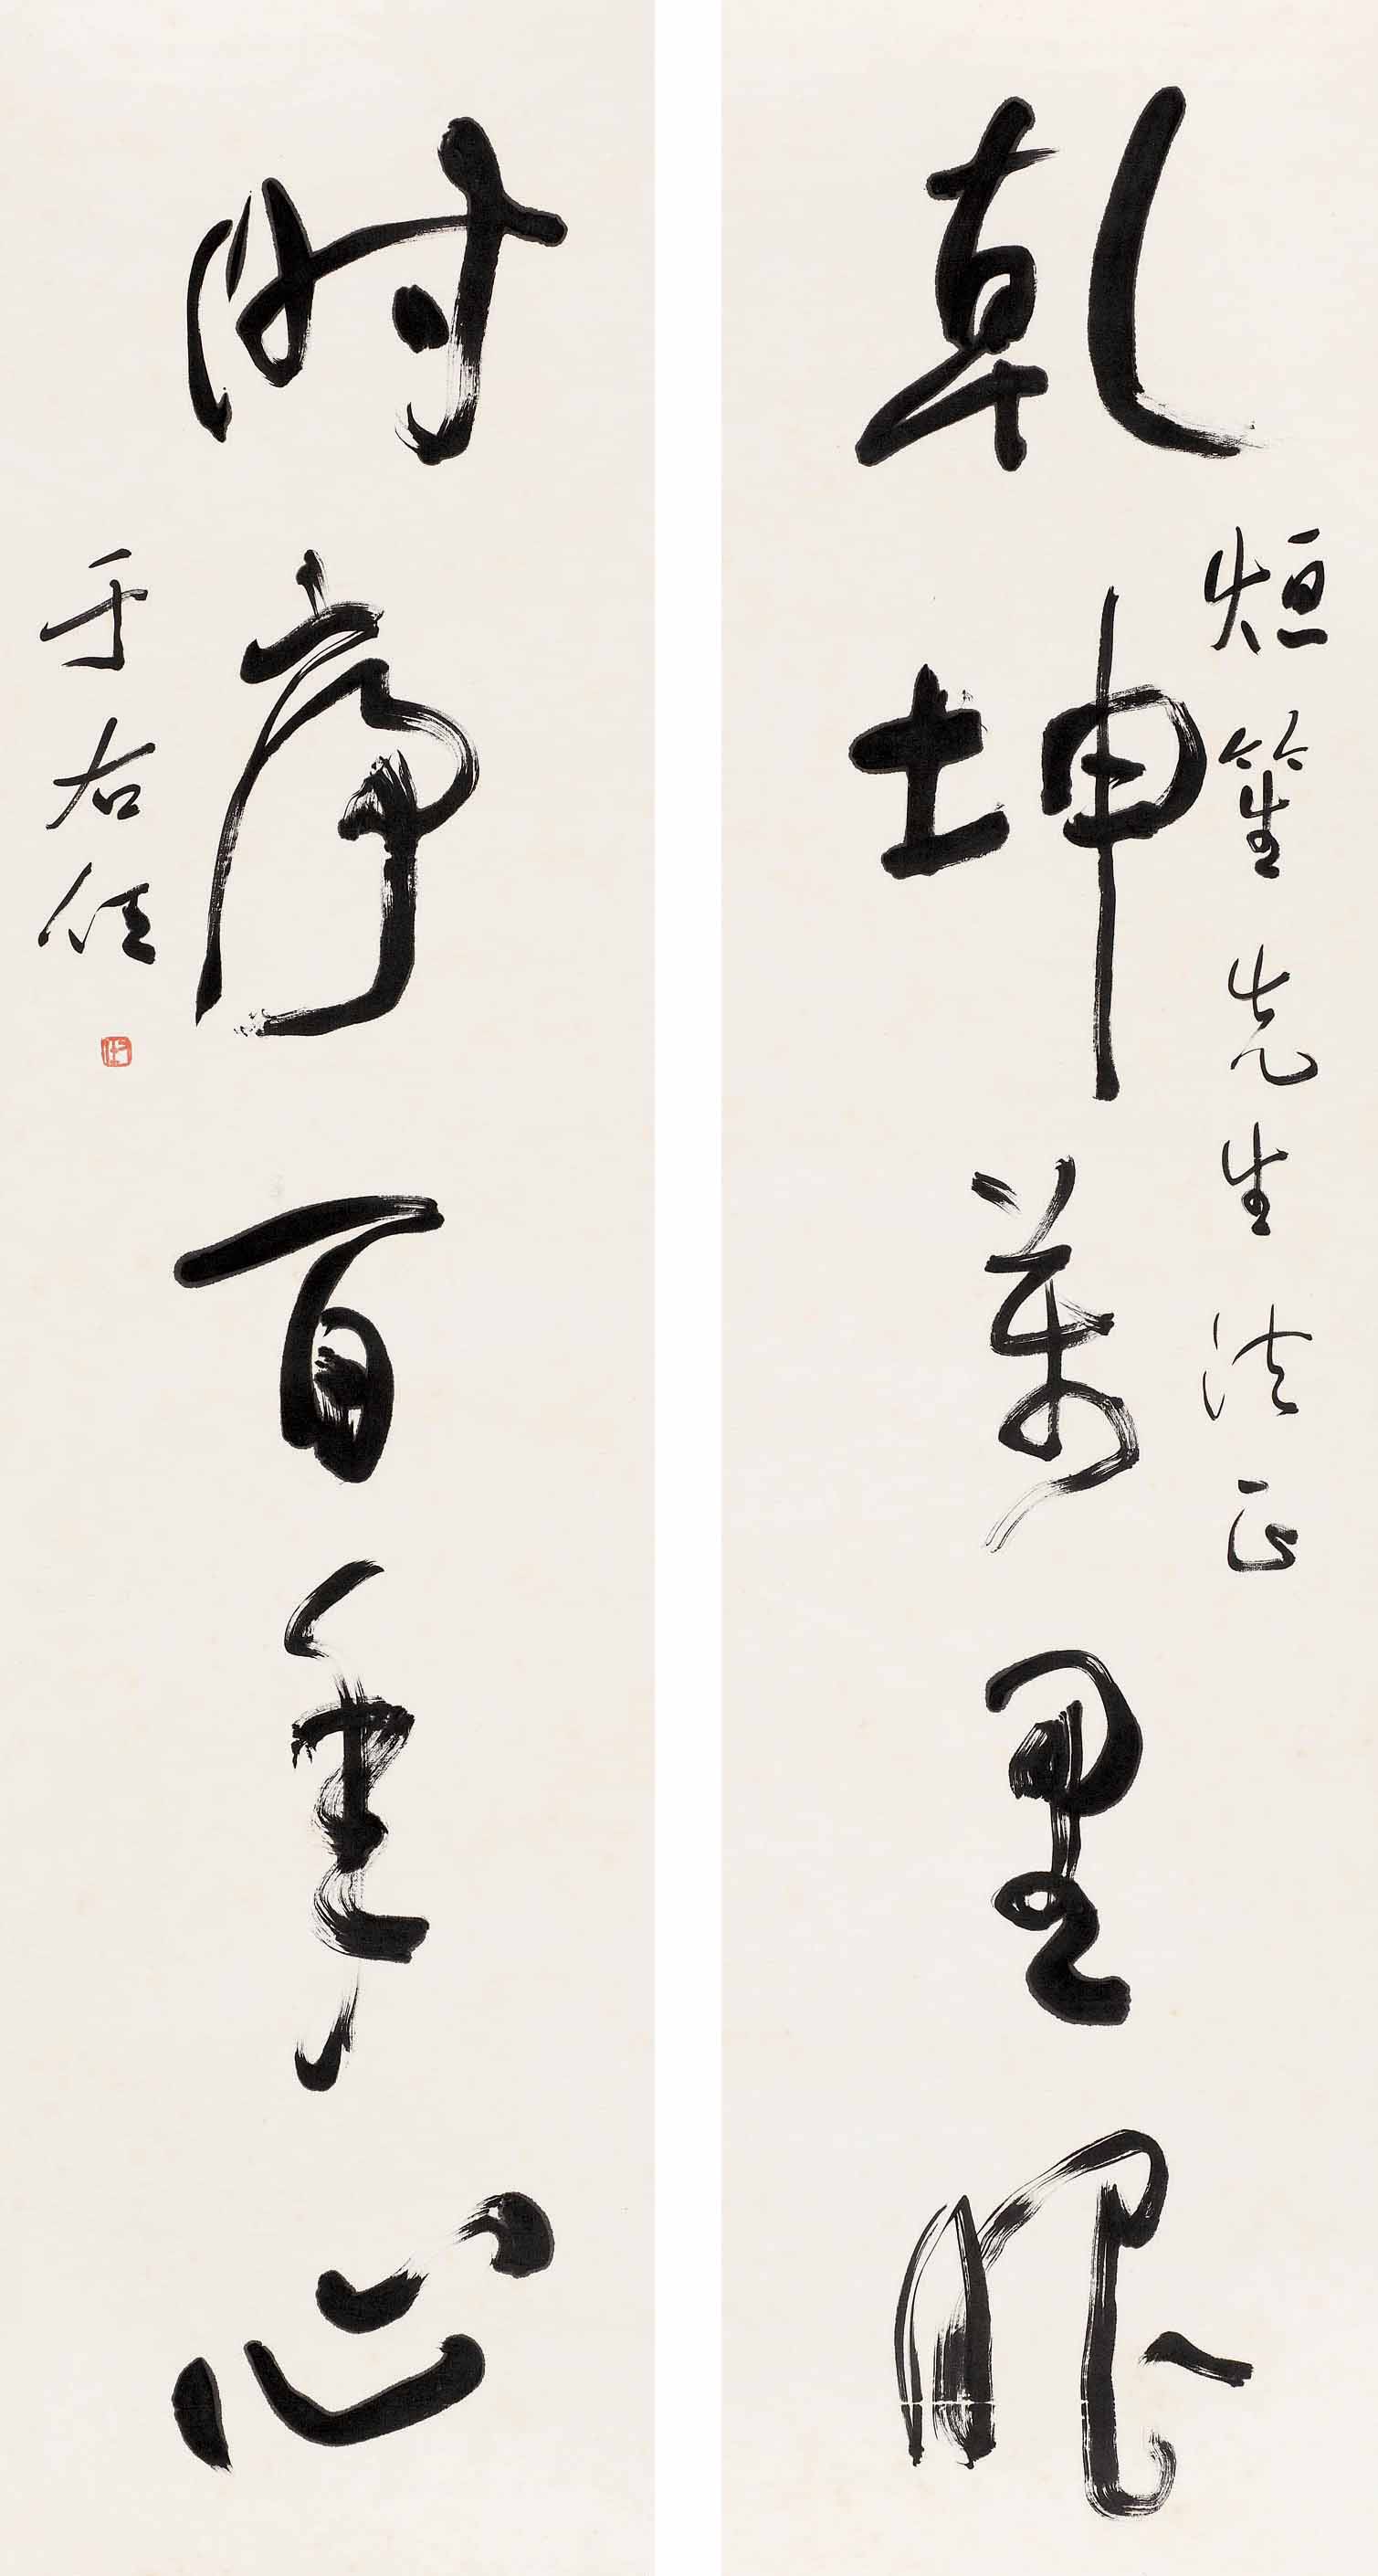 乾坤萬里眼
烜笙先生法正
时序百年心
于右任